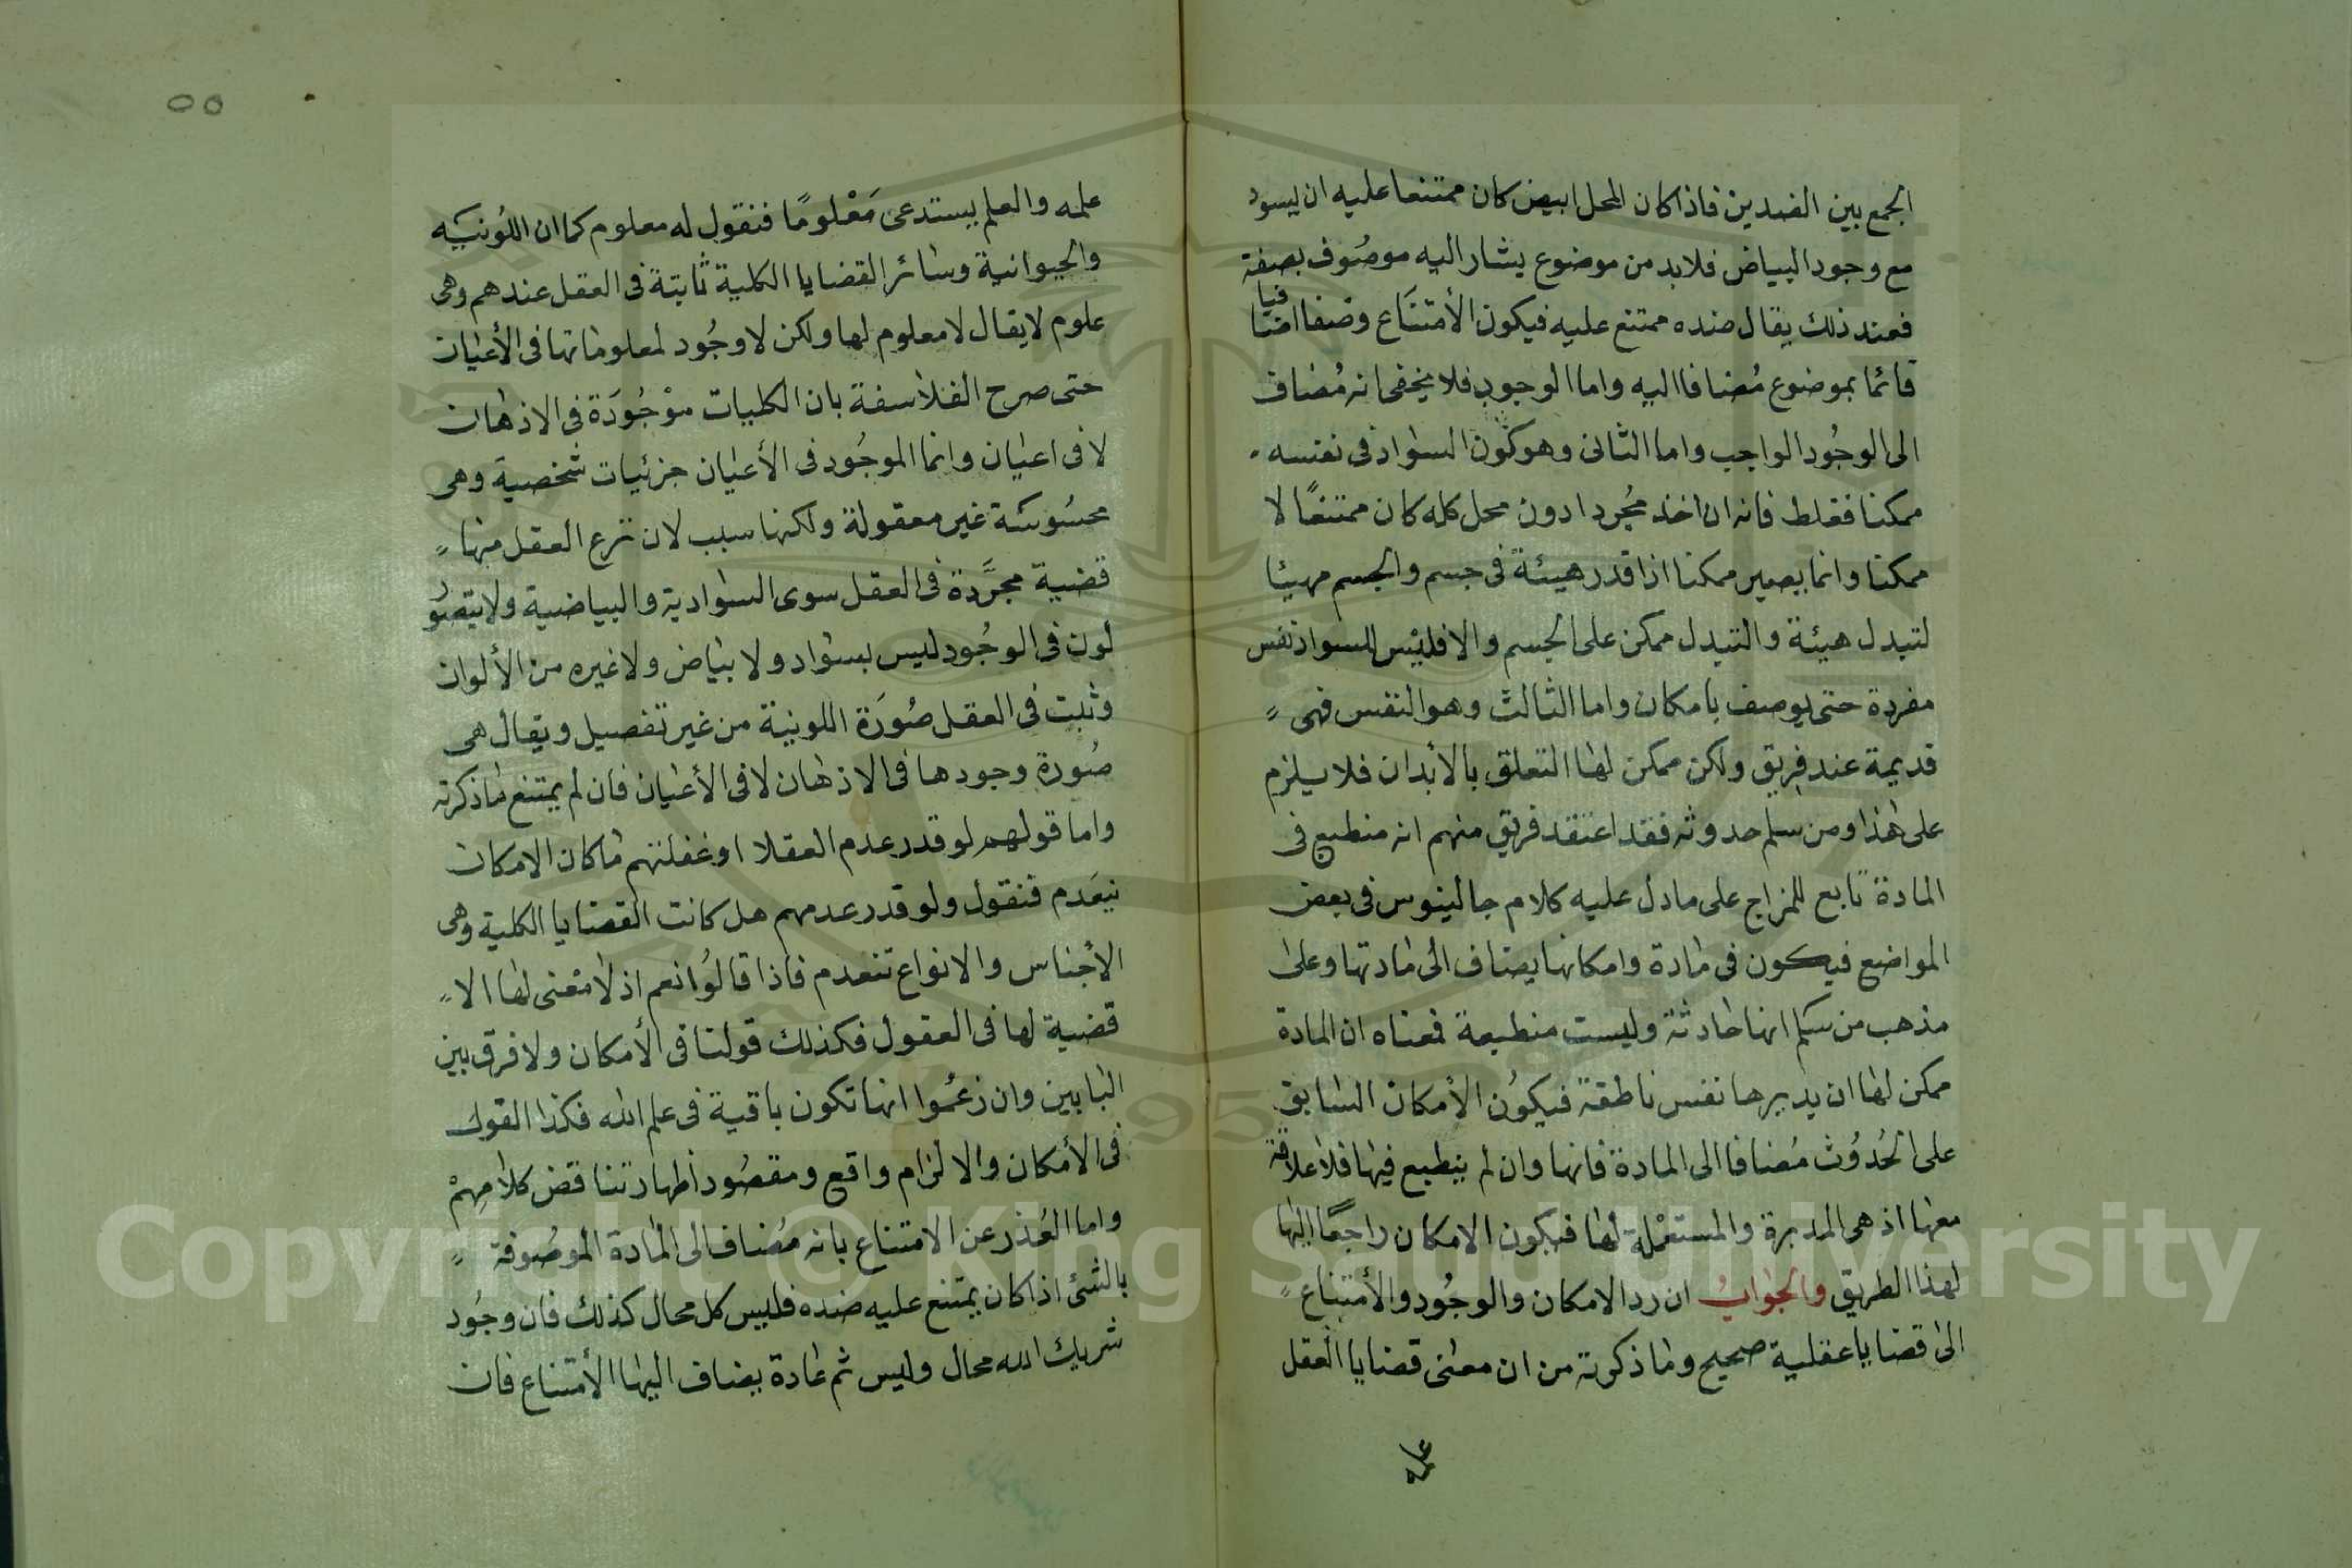 الجمع بين الضدين فاذا كان المحل ابيض كان ممتنعا عليه ان يسود
مع وجود البياض فلا بد من موضوع يشار اليه موصُوف بصفة
فعند ذلك يقال ضده ممتنع عليه فيكون الأمتنَاع وصفا اضا
فيا
قائما بموضوع مُضافا اليه واما الوجوب فلا يخفى انه مُضاف
الى الوجُود الواجب واما الثانى وهو كَون السواد فى نفسه
ممكنا فغلط فانه ان اخذ مُجردا دون محل كله كان ممتنعًا لا
ممكنا وانما يصير ممكنا اذا قدر هيئة فى جسم والجسم مهيئا
لتبدل هيئة والتبدل ممكن على الجسم والا فليْس للسواد نفس
مفردة حتى يوصف بامكان واما الثالث وهو النفس فهى
قديمة عند فريق ولكن ممكن لها التعلق بالأبدان فلا يلزم
على هذا ومن سلم حدوثه فقد اعتقد فريق منهم انه منطبع فى
المادة تابع للمزاج على ما دل عليه كلام جالينوس فى بعض
المواضع فيكون فى مادة وامكانها يضاف الى مادتها وعلى
مذهب من سلم انها حادثة وليست منطبعة فمعناه ان المادة
ممكن لها ان يدبرها نفس ناطقة فيكوُن الأمكان السابق
على الحُدوُث مُضافا الى المادة فانها وان لم ينطبع فيها فلا علاقة
معها اذ هى المدبرة والمستعْملة لها فيكون الامكان راجعًا اليها
لهذا الطريق والجوابُ ان رد الامكان والوجُود والأمتناع
الى قضايا عقلية صحيح وما ذكرته من ان معنى قضايا العقل
علمه
٥٥
علمه والعلم يستدعى مَعْلومًا فنقول له معلوم كما ان اللُونيَه
والحيوانية وسائر القضايا الكلية ثابتة فى العقل عندهم وهى
علوم لا يقال لا معلوم لها ولكن لا وجُود لمعلوماتها فى الأعيان
حتى صرح الفلاسفة بان الكليات موْجُودَة فى الاذهان
لا فى اعيان وانما الموجُود فى الأعيان جزئيات شخصية وهى
محسُوسَة غير معقولة ولكنها سبب لان تزع العقل منها
قضية مجرَّدة فى العقل سوى السوادية والبياضية ولا يتصُو
لون فى الوجُود ليس بسواد ولا بياض ولا غيره من الألوان
وثبت فى العقل صُورَة اللونية من غير تفصيل ويقال هى
صُورة وجودها فى الاذهان لا فى الأعيان فان لم يمتنع ما ذكرته
واما قولهم لو قدر عدم العقلا او غفلتهم ما كان الامكان
نيعَدم فنقول ولو قدر عدمهم هل كانت القضايا الكلية وهى
الأجناس والانواع تنعدم فاذا قالوُا نعم اذ لا معْنى لها الا
قضية لها فى العقول فكذلك قولنا فى الأمكان ولا فرق بين
البابين وان زعمُوا انها تكون باقية فى علم الله فكذا القول
فى الأمكان والالزام واقع ومقصُود أظهار تناقض كلامهمْ
واما العُذر عن الامتناع بانه مُضاف الى المادة الموصُوفة
بالشئ اذ كان يمتنع عليه ضده فليس كل محال كذلك فان وجُود
شريك الله محال وليس ثم مادة يضاف اليها الأمتناع فان
Copyright © King Saud University